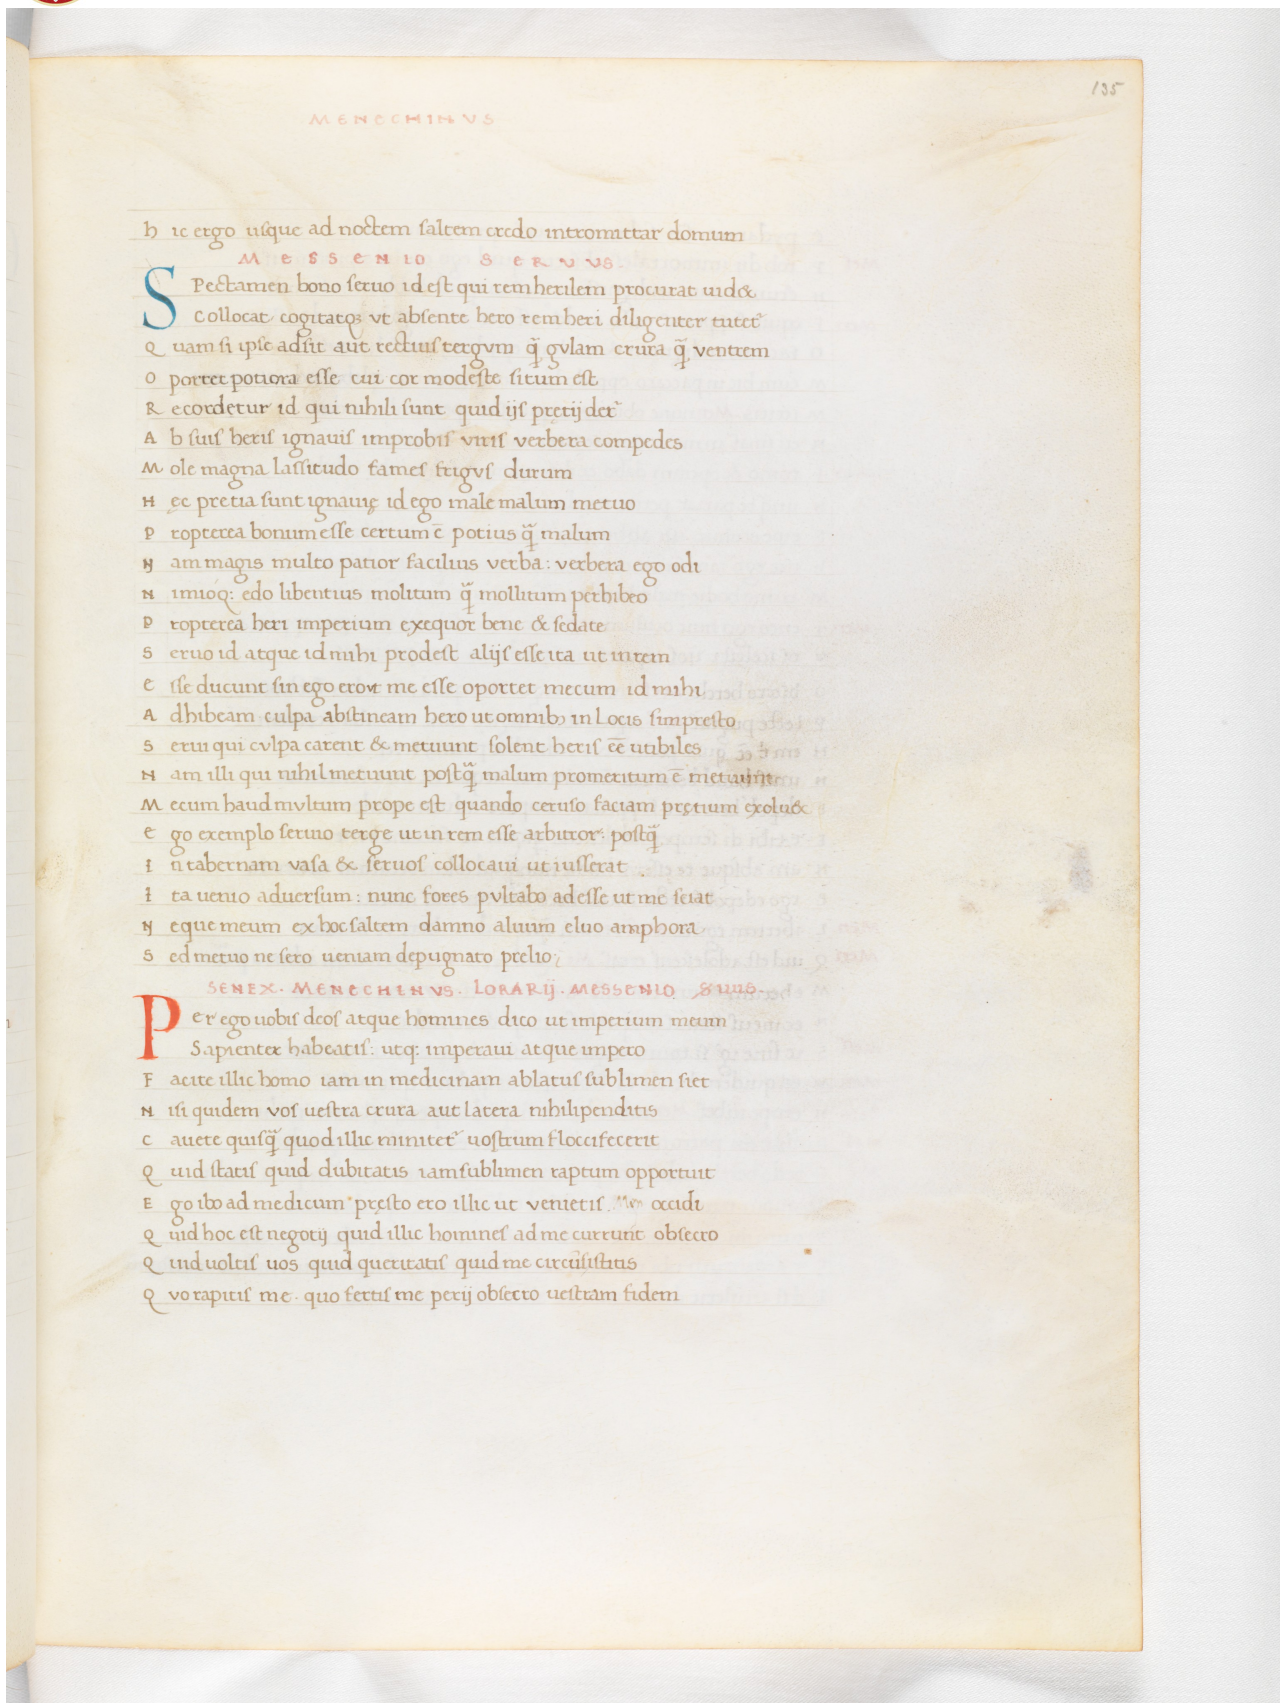 135
MENECHINVS
hic ergo usque ad noctem saltem credo intromittar domum
MESSENIO SERVVS.
SPectamen bono seruo id est qui rem herilem procurat uid&
Collocat cogitatq; vt absente hero rem heri diligenter tutet᷑
Quam si ipse adsit aut rectius tergvm q̃ gvlam crura q̃ ventrem
Oportet potiora esse cui cor modeste situm est
Recordetur id qui nihili sunt quid ijs pretij det᷑
Ab suis heris ignauis improbis viris verbera compedes
Mole magna lassitudo fames frigvs durum
Hęc pretia sunt ignauię id ego male malum metuo
Propterea bonum esse certum ē potius q̃ malum
Nam magis multo patior facilius verba: verbera ego odi
Nimioq: edo libentius molitum q̃ mollitum perhibeo
Propterea heri imperium exequor bene & sedate
Seruo id atque id mihi prodest alijs esse ita ut in rem
Esse ducunt sin ego erovt me esse oportet mecum id mihi
Adhibeam culpa abstineam hero ut omnib; in Locis sim presto
Serui qui cvlpa carent & metuunt solent heris eē utibiles
Nam illi qui nihil metuunt postq̃ malum promeritum ē metuunt
Mecum haud mvltum prope est quando ceruso faciam prętium exolu&
Ego exemplo seruio terge ut in rem esse arbitror: postq̃
In tabernam vasa & seruos collocaui ut iusserat
Ita uenio aduersum: nunc fores pvltabo adesse ut me sciat
Neque meum ex hoc saltem damno aluum eluo amphora
Sed metuo ne sero ueniam depugnato prelio
SENEX. MENECHINVS. LORARIJ. MESSENIO Suus.
Per ego uobis deos atque homines dico ut imperium meum
Sapienter habeatis: utq: imperaui atque impero
Facite illic homo iam in medicinam ablatus sublimen siet
Nisi quidem vos uestra crura aut latera nihilipenditis
Cauete quisq̃ quod illic minitet᷑ uostrum floccifecerit
Quid statis quid dubitatis iam sublimen raptum opportuit
Ego ibo ad medicum pręsto ero illic ut venietis. Men occidi
Quid hoc est negotij quid illic homines ad me currunt obsecro
Quid uoltis uos quid queritatis quid me circūsistitis
Qvo rapitis me. quo fertis me perij obsecro uestram fidem